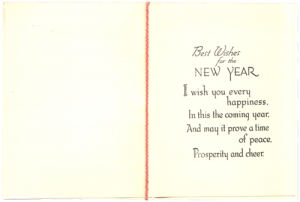 Best Wishes
for the
NEW YEAR
I wish you every
happiness,
In this the coming year,
And may it prove a time
of peace,
Prosperity and cheer.